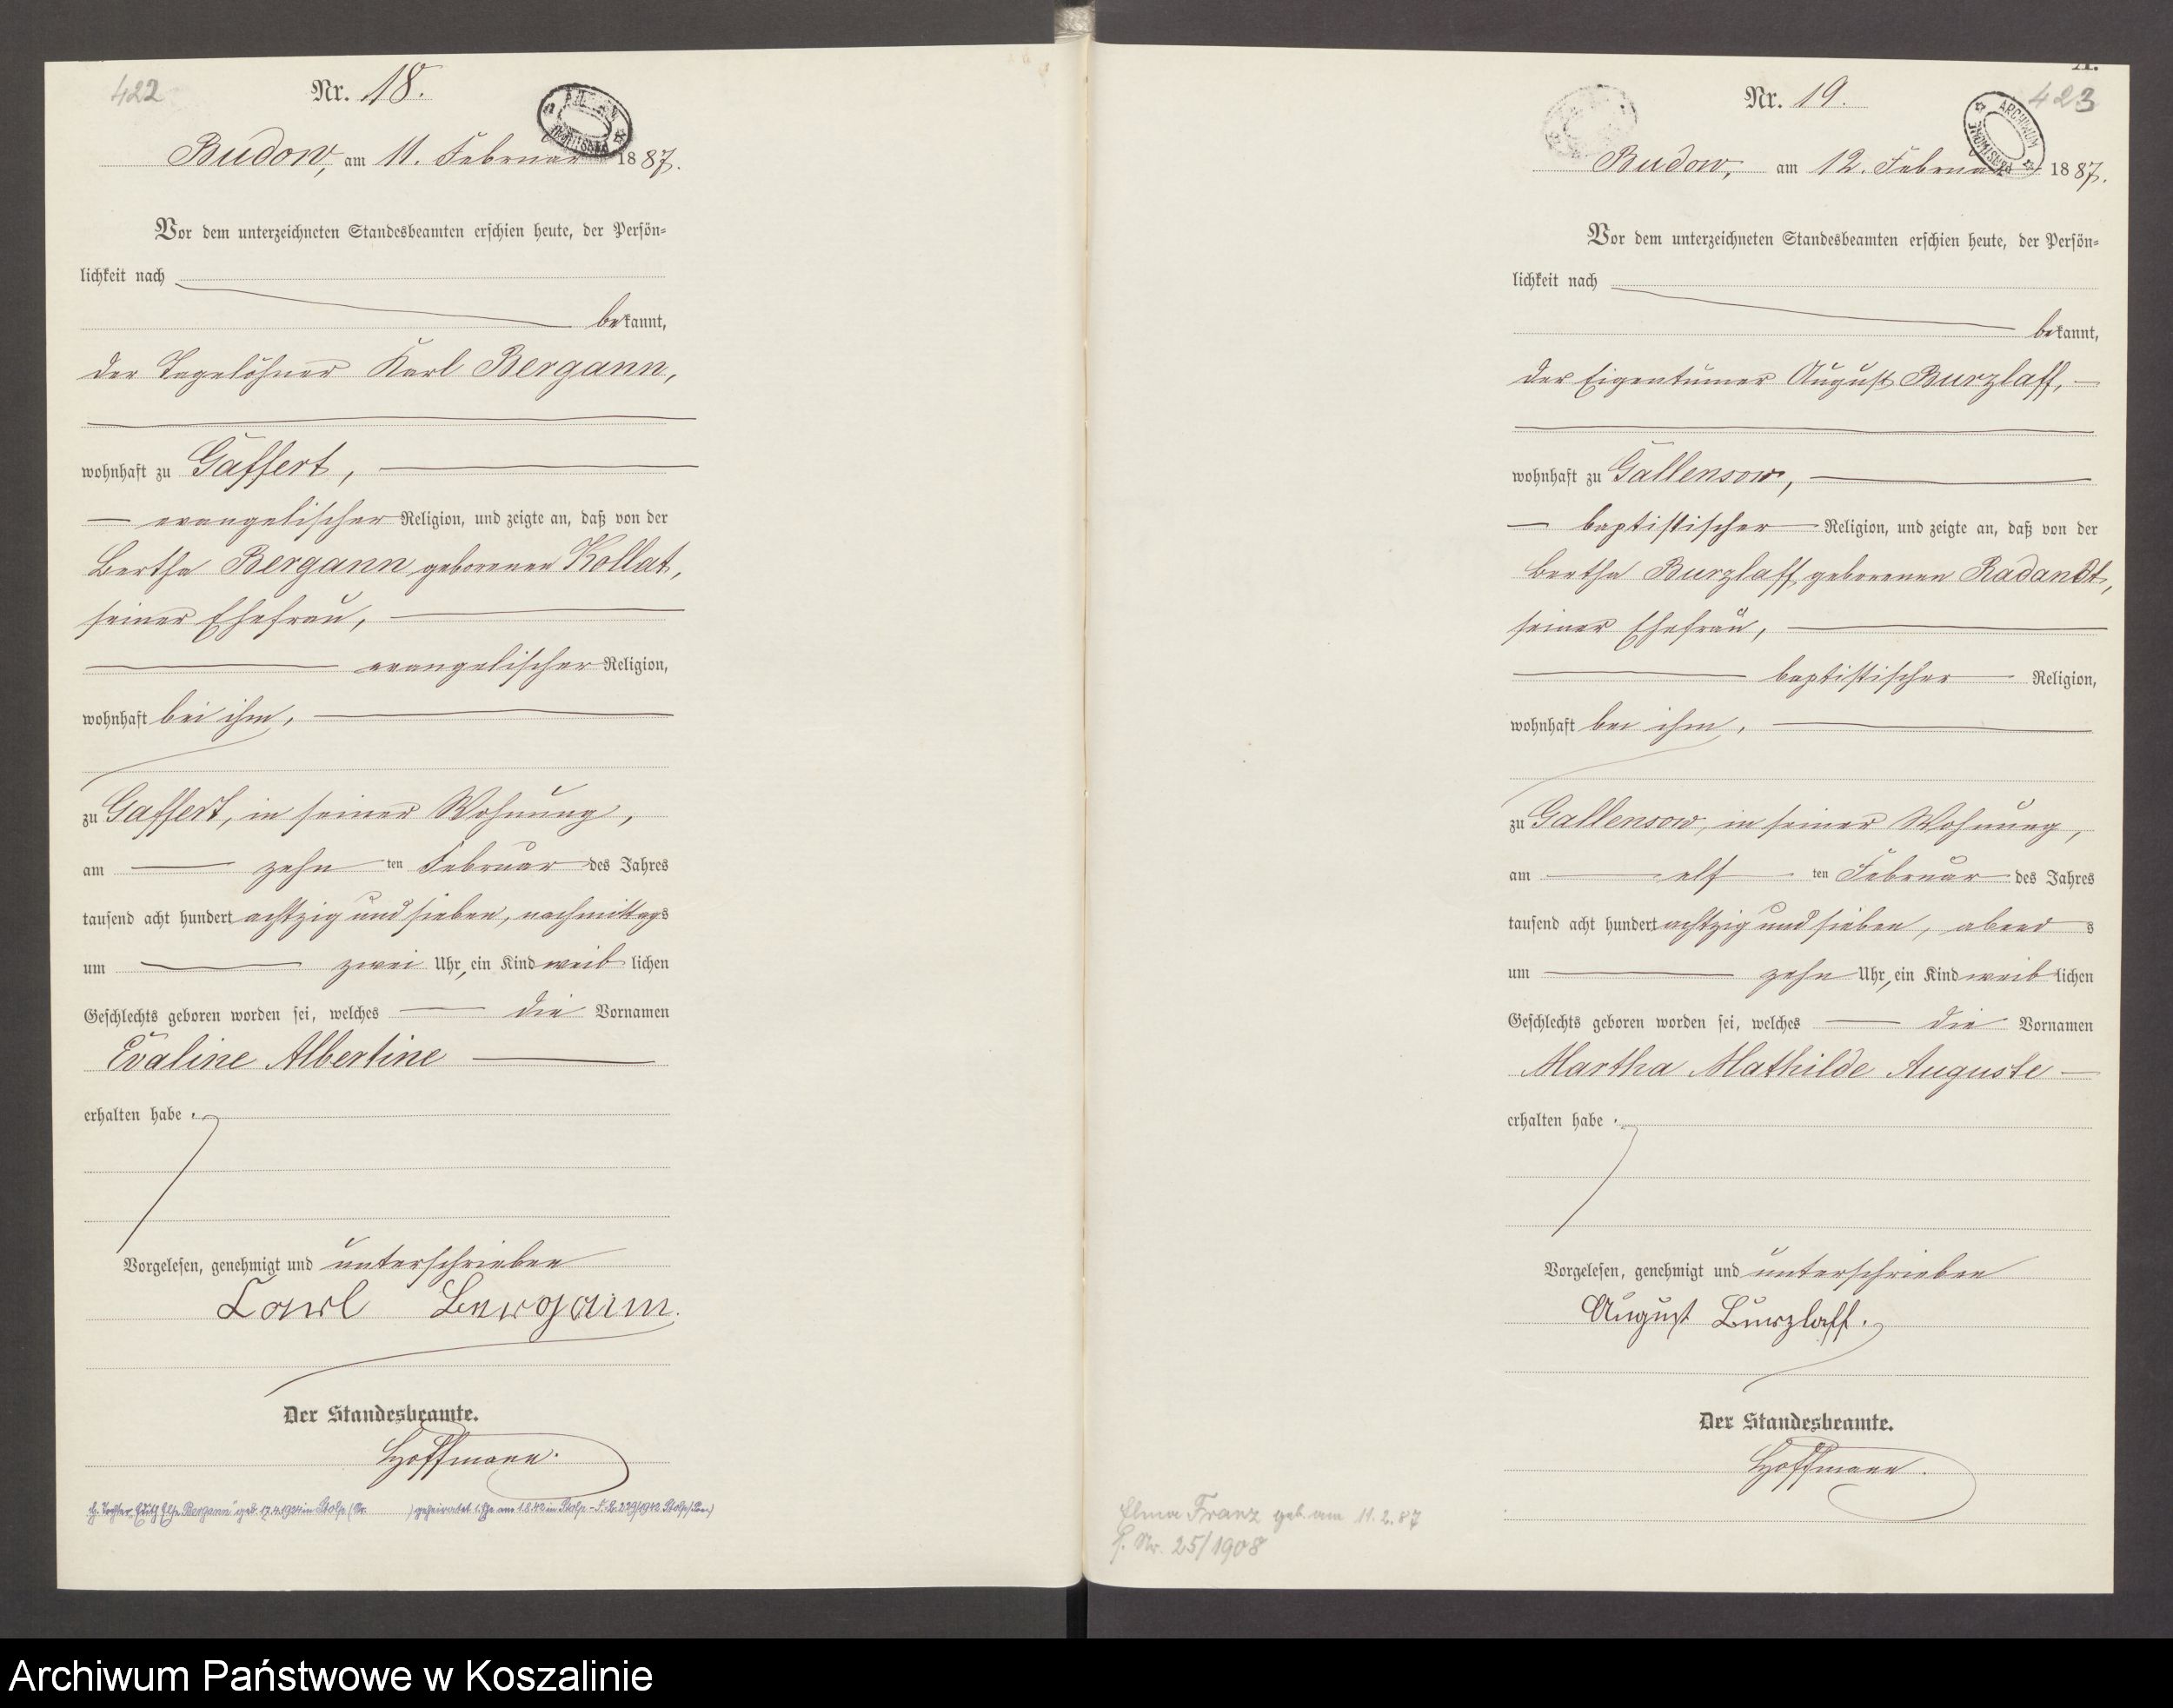 422
Nr. 18.
Budow, am 11. Februar 1887.
Vor dem unterzeichneten Standesbeamten erschien heute, der Persön-
lichkeit nach
bekannt,
der Tagelöhner Karl Bergann,
wohnhaft zu Gaffert,
evangelischer Religion, und zeigte an, daß von der
Bertha Bergann geborenen Kollat,
seiner Ehefrau,
evangelischer Religion,
wohnhaft bei ihm,
zu Gaffert, in seiner Wohnung,
am zehn ten Februar des Jahres
tausend acht hundert achtzig und sieben, nachmittags
um zwei Uhr, ein Kind weiblichen
Geschlechts geboren worden sei, welches die Vornamen
Evaline Albertine
erhalten habe.
Vorgelesen, genehmigt und unterschrieben
Carl Bergann.
Der Standesbeamte.
Hoffmann.
Tochter "Edith Else Bergann" geb. 17.4.1924 in Stolp (Nr. ) geheiratet 1. Ehe am 1.8.42 in Stolp - F. B. 229/1942 Stolp/Pom.)
423
Nr. 19.
ARCHIWUM PAŃSTWOWE
Budow, am 12. Februar 1887.
Vor dem unterzeichneten Standesbeamten erschien heute, der Persön-
lichkeit nach
bekannt,
der Eigentümer August Burzlaff,
wohnhaft zu Gallensow,
baptistischer Religion, und zeigte an, daß von der
Bertha Burzlaff, geborenen Radandt,
seiner Ehefrau,
baptistischer Religion,
wohnhaft bei ihm,
zu Gallensow, in seiner Wohnung,
am elf ten Februar des Jahres
tausend acht hundert achtzig und sieben, abends
um zehn Uhr, ein Kind weiblichen
Geschlechts geboren worden sei, welches die Vornamen
Martha Mathilde Auguste
erhalten habe.
Vorgelesen, genehmigt und unterschrieben
August Burzlaff.
Der Standesbeamte.
Hoffmann.
Elma Franz geb. am 11.2.87
H. Nr. 25/1908
Archiwum Państwowe w Koszalinie